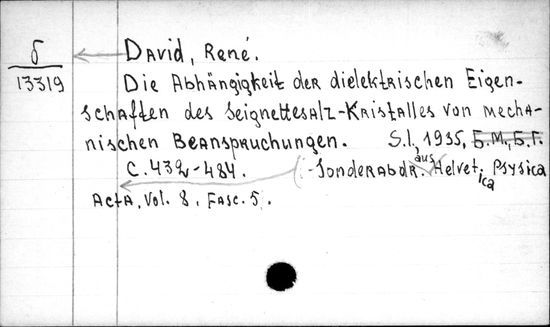 б
13319
David, René.
Die Abhängigkeit der dielektrischen Eigen-
schaften des Seignettesalz-Kristalles von mecha-
nischen Beanspruchungen. S.l, 1935, Б.М., Б.Г.
С. 432-484. (-Sonderabdr. aus Helvetica Psysica
Acta, Vol. 8, Fasc. 5.